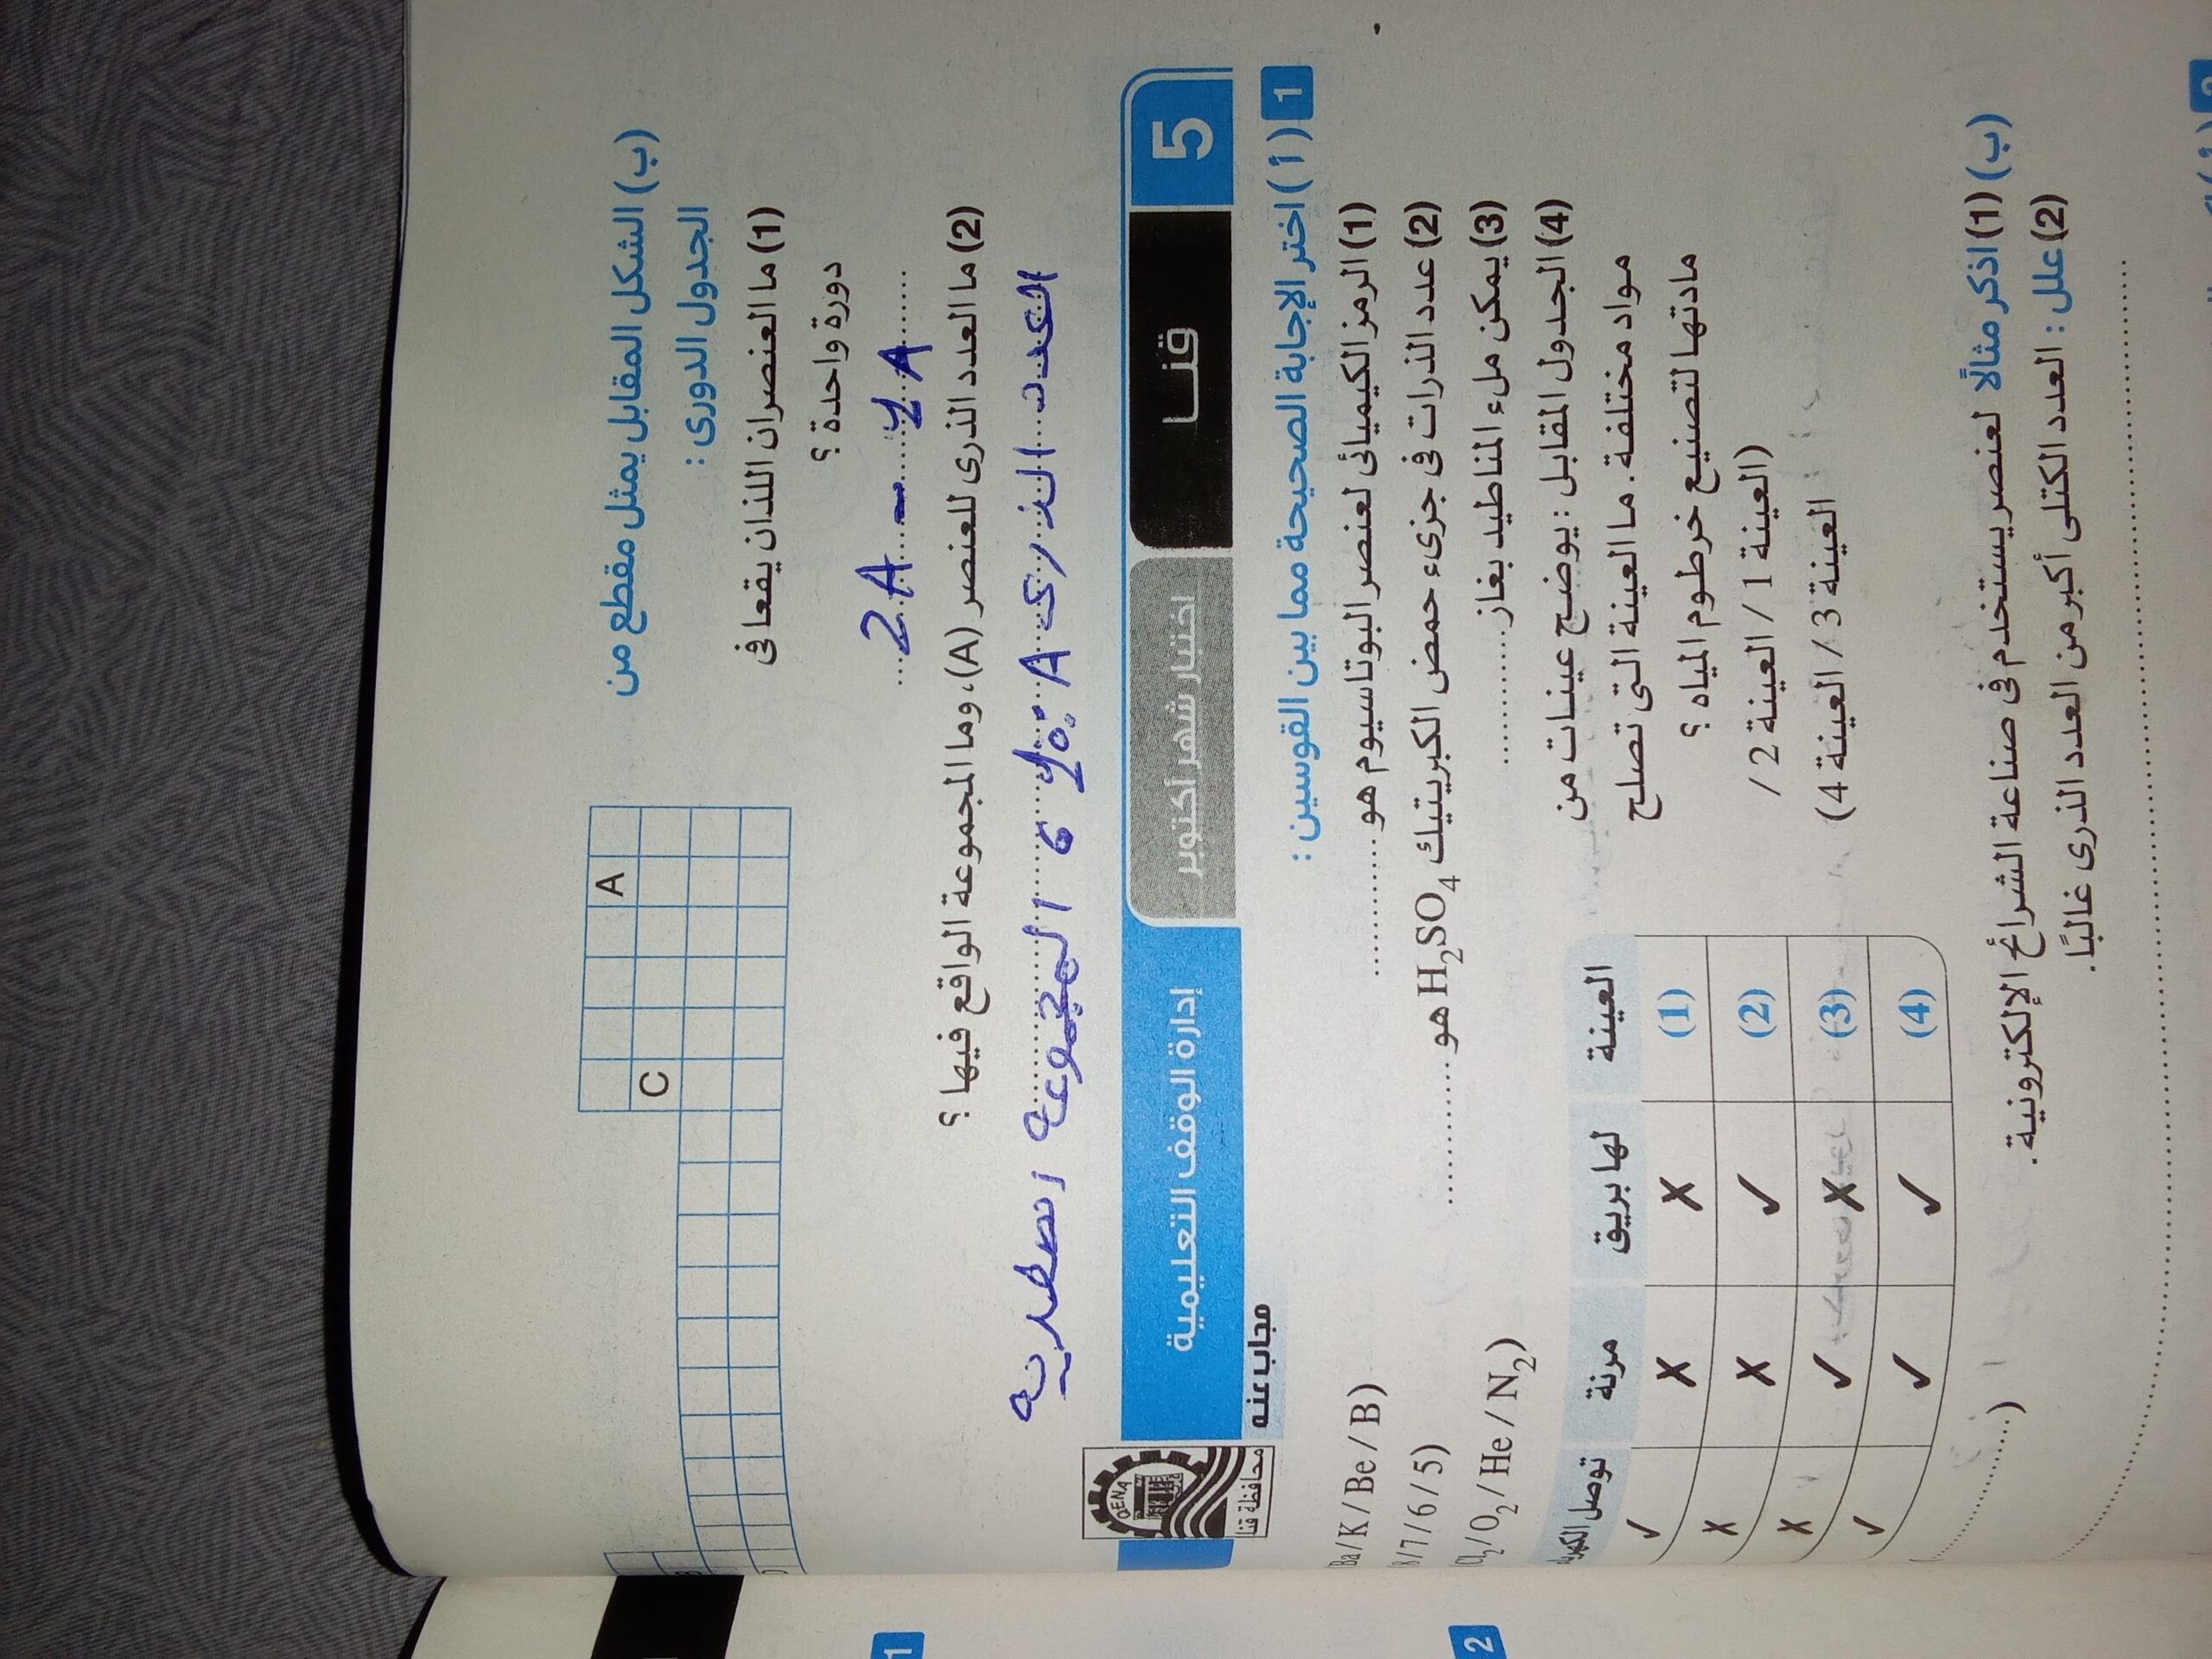 (ب) الشكل المقابل يمثل مقطع من
الجدول الدورى :
(1) ما العنصران اللذان يقعا فى
دورة واحدة ؟
2A – ya
(2) ما العدد الذرى للعنصر (A)، وما المجموعة الواقع فيها ؟
العدد الذرى A
المجموعة
A
C
B
5
قنـا
اختبار شهر أكتوبر
إدارة الوقف التعليمية
QENA
محافظة قنا
مجاب عنه
1 (أ) اختر الإجابة الصحيحة مما بين القوسين :
(1) الرمز الكيميائى لعنصر البوتاسيوم هو ............ (Ba / K / Be / B)
(2) عدد الذرات فى جزىء حمض الكبريتيك H₂SO₄ هو ............ 8 / 7 / 6 / 5)
(3) يمكن ملء المناطيد بغاز ............ (Cl₂ / O₂ / He / N₂)
(4) الجدول المقابل : يوضح عينات من
مواد مختلفة. ما العينة التى تصلح
مادتها لتصنيع خرطوم المياه ؟
(العينة 1 / العينة 2 /
العينة 3 / العينة 4)
العينة لها بريق مرنة توصل الكهرباء
(1) ✗ ✗ ✓
(2) ✓ ✗ ✗
(3) ✗ ✓ ✗
(4) ✓ ✓ ✓
(ب) (1) اذكر مثالًا لعنصر يستخدم فى صناعة الشرائح الإلكترونية. (............)
(2) علل : العدد الكتلى أكبر من العدد الذرى غالبًا.
1
2